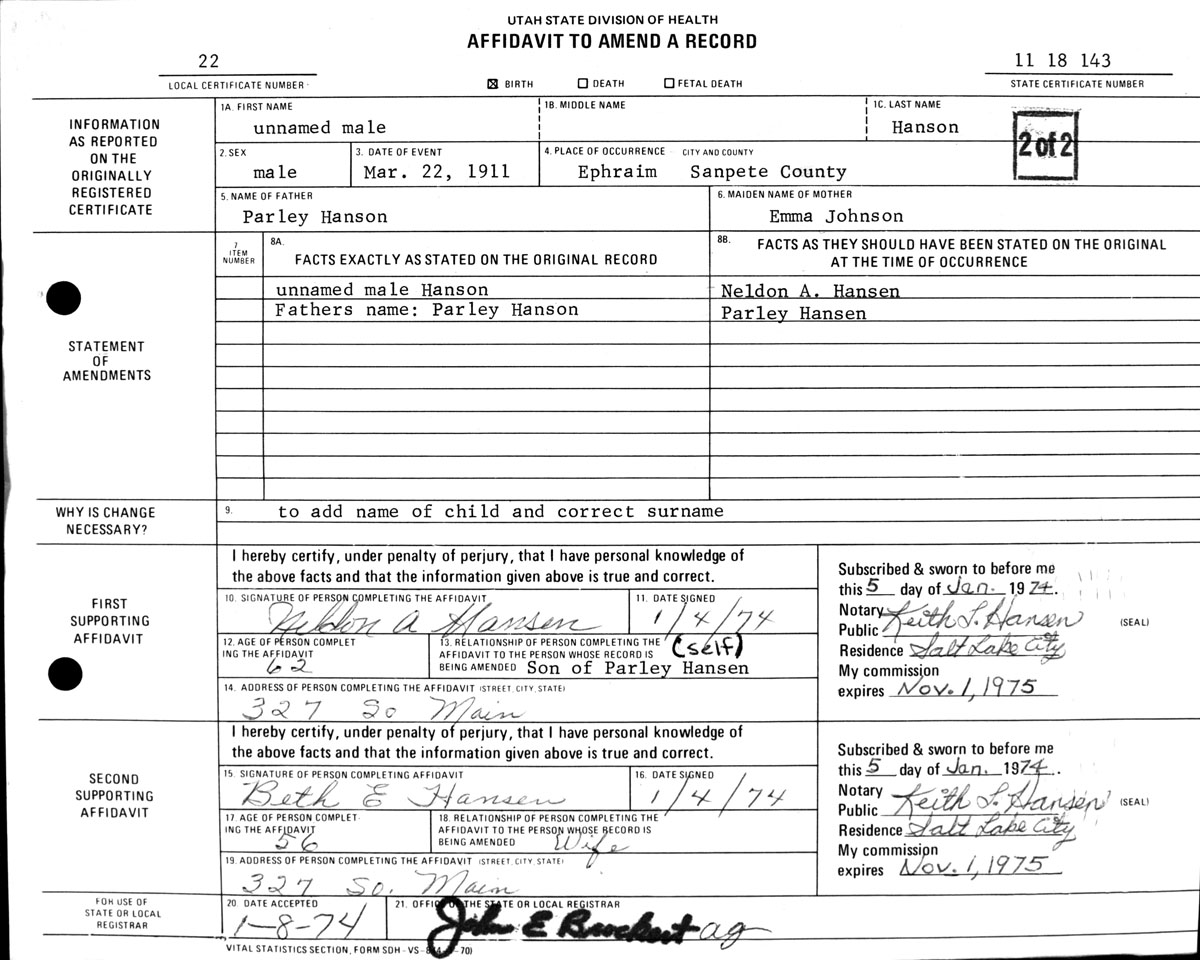 UTAH STATE DIVISION OF HEALTH
AFFIDAVIT TO AMEND A RECORD
22
11 18 143
LOCAL CERTIFICATE NUMBER
☒ BIRTH ☐ DEATH ☐ FETAL DEATH
STATE CERTIFICATE NUMBER
INFORMATION
AS REPORTED
ON THE
ORIGINALLY
REGISTERED
CERTIFICATE
1A. FIRST NAME
unnamed male
1B. MIDDLE NAME
1C. LAST NAME
Hanson
2 of 2
2. SEX
male
3. DATE OF EVENT
Mar. 22, 1911
4. PLACE OF OCCURRENCE CITY AND COUNTY
Ephraim Sanpete County
5. NAME OF FATHER
Parley Hanson
6. MAIDEN NAME OF MOTHER
Emma Johnson
STATEMENT
OF
AMENDMENTS
7
ITEM
NUMBER
8A.
FACTS EXACTLY AS STATED ON THE ORIGINAL RECORD
8B. FACTS AS THEY SHOULD HAVE BEEN STATED ON THE ORIGINAL
AT THE TIME OF OCCURRENCE
unnamed male Hanson
Neldon A. Hansen
Fathers name: Parley Hanson
Parley Hansen
WHY IS CHANGE
NECESSARY?
9. to add name of child and correct surname
FIRST
SUPPORTING
AFFIDAVIT
I hereby certify, under penalty of perjury, that I have personal knowledge of
the above facts and that the information given above is true and correct.
10. SIGNATURE OF PERSON COMPLETING THE AFFIDAVIT
Neldon A Hansen
11. DATE SIGNED
1/4/74
12. AGE OF PERSON COMPLET
ING THE AFFIDAVIT
62
13. RELATIONSHIP OF PERSON COMPLETING THE
AFFIDAVIT TO THE PERSON WHOSE RECORD IS (self)
BEING AMENDED Son of Parley Hansen
14. ADDRESS OF PERSON COMPLETING THE AFFIDAVIT (STREET, CITY, STATE)
327 So Main
Subscribed & sworn to before me
this 5 day of Jan. 1974.
Notary
Public Keith L. Hansen (SEAL)
Residence Salt Lake City
My commission
expires Nov. 1, 1975
SECOND
SUPPORTING
AFFIDAVIT
I hereby certify, under penalty of perjury, that I have personal knowledge of
the above facts and that the information given above is true and correct.
15. SIGNATURE OF PERSON COMPLETING AFFIDAVIT
Beth E Hansen
16. DATE SIGNED
1/4/74
17. AGE OF PERSON COMPLET-
ING THE AFFIDAVIT
56
18. RELATIONSHIP OF PERSON COMPLETING THE
AFFIDAVIT TO THE PERSON WHOSE RECORD IS
BEING AMENDED Wife
19. ADDRESS OF PERSON COMPLETING THE AFFIDAVIT (STREET, CITY, STATE)
327 So. Main
Subscribed & sworn to before me
this 5 day of Jan. 1974.
Notary
Public Keith L. Hansen (SEAL)
Residence Salt Lake City
My commission
expires Nov. 1, 1975
FOR USE OF
STATE OR LOCAL
REGISTRAR
20. DATE ACCEPTED
1-8-74
21. OFFICE OF THE STATE OR LOCAL REGISTRAR
John E Brockert ag
VITAL STATISTICS SECTION, FORM SDH-VS-